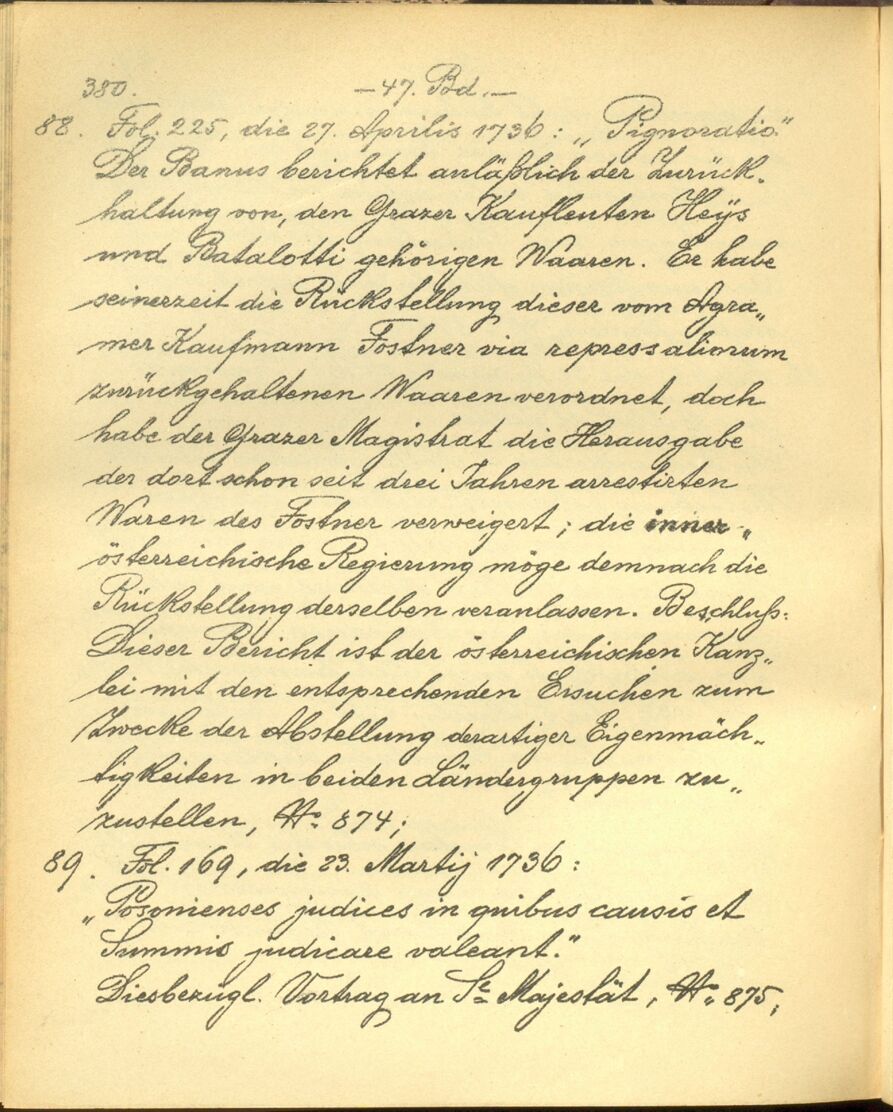 380. —47. Bd.—
88. Fol. 225, die 27. Aprilis 1736: „Pignoratio."
Der Banus berichtet anläßlich der Zurück-
haltung von, den Grazer Kaufleuten Heÿs
und Batalotti gehörigen Waaren. Er habe
seinerzeit die Rückstellung dieser vom Agra„
mer Kaufmann Fostner via repressalionum
zurückgehaltenen Waaren verordnet, doch
habe der Grazer Magistrat die Herausgabe
der dort schon seit drei Jahren arrestirten
Waren des Fostner verweigert; die inner„
österreichische Regierung möge demnach die
Rückstellung derselben veranlassen. Beschluß:
Dieser Bericht ist der österreichischen Kanz„
lei mit den entsprechenden Ersuchen zum
Zwecke der Abstellung derartiger Eigenmäch„
tigkeiten in beiden Ländergruppen zu„
zustellen, No. 874;
89. Fol. 169, die 23. Martij 1736:
„Posonienses judices in quibus causis et
Summis judicare valeant."
Diesbezügl. Vortrag an Se Majestät, No. 875;